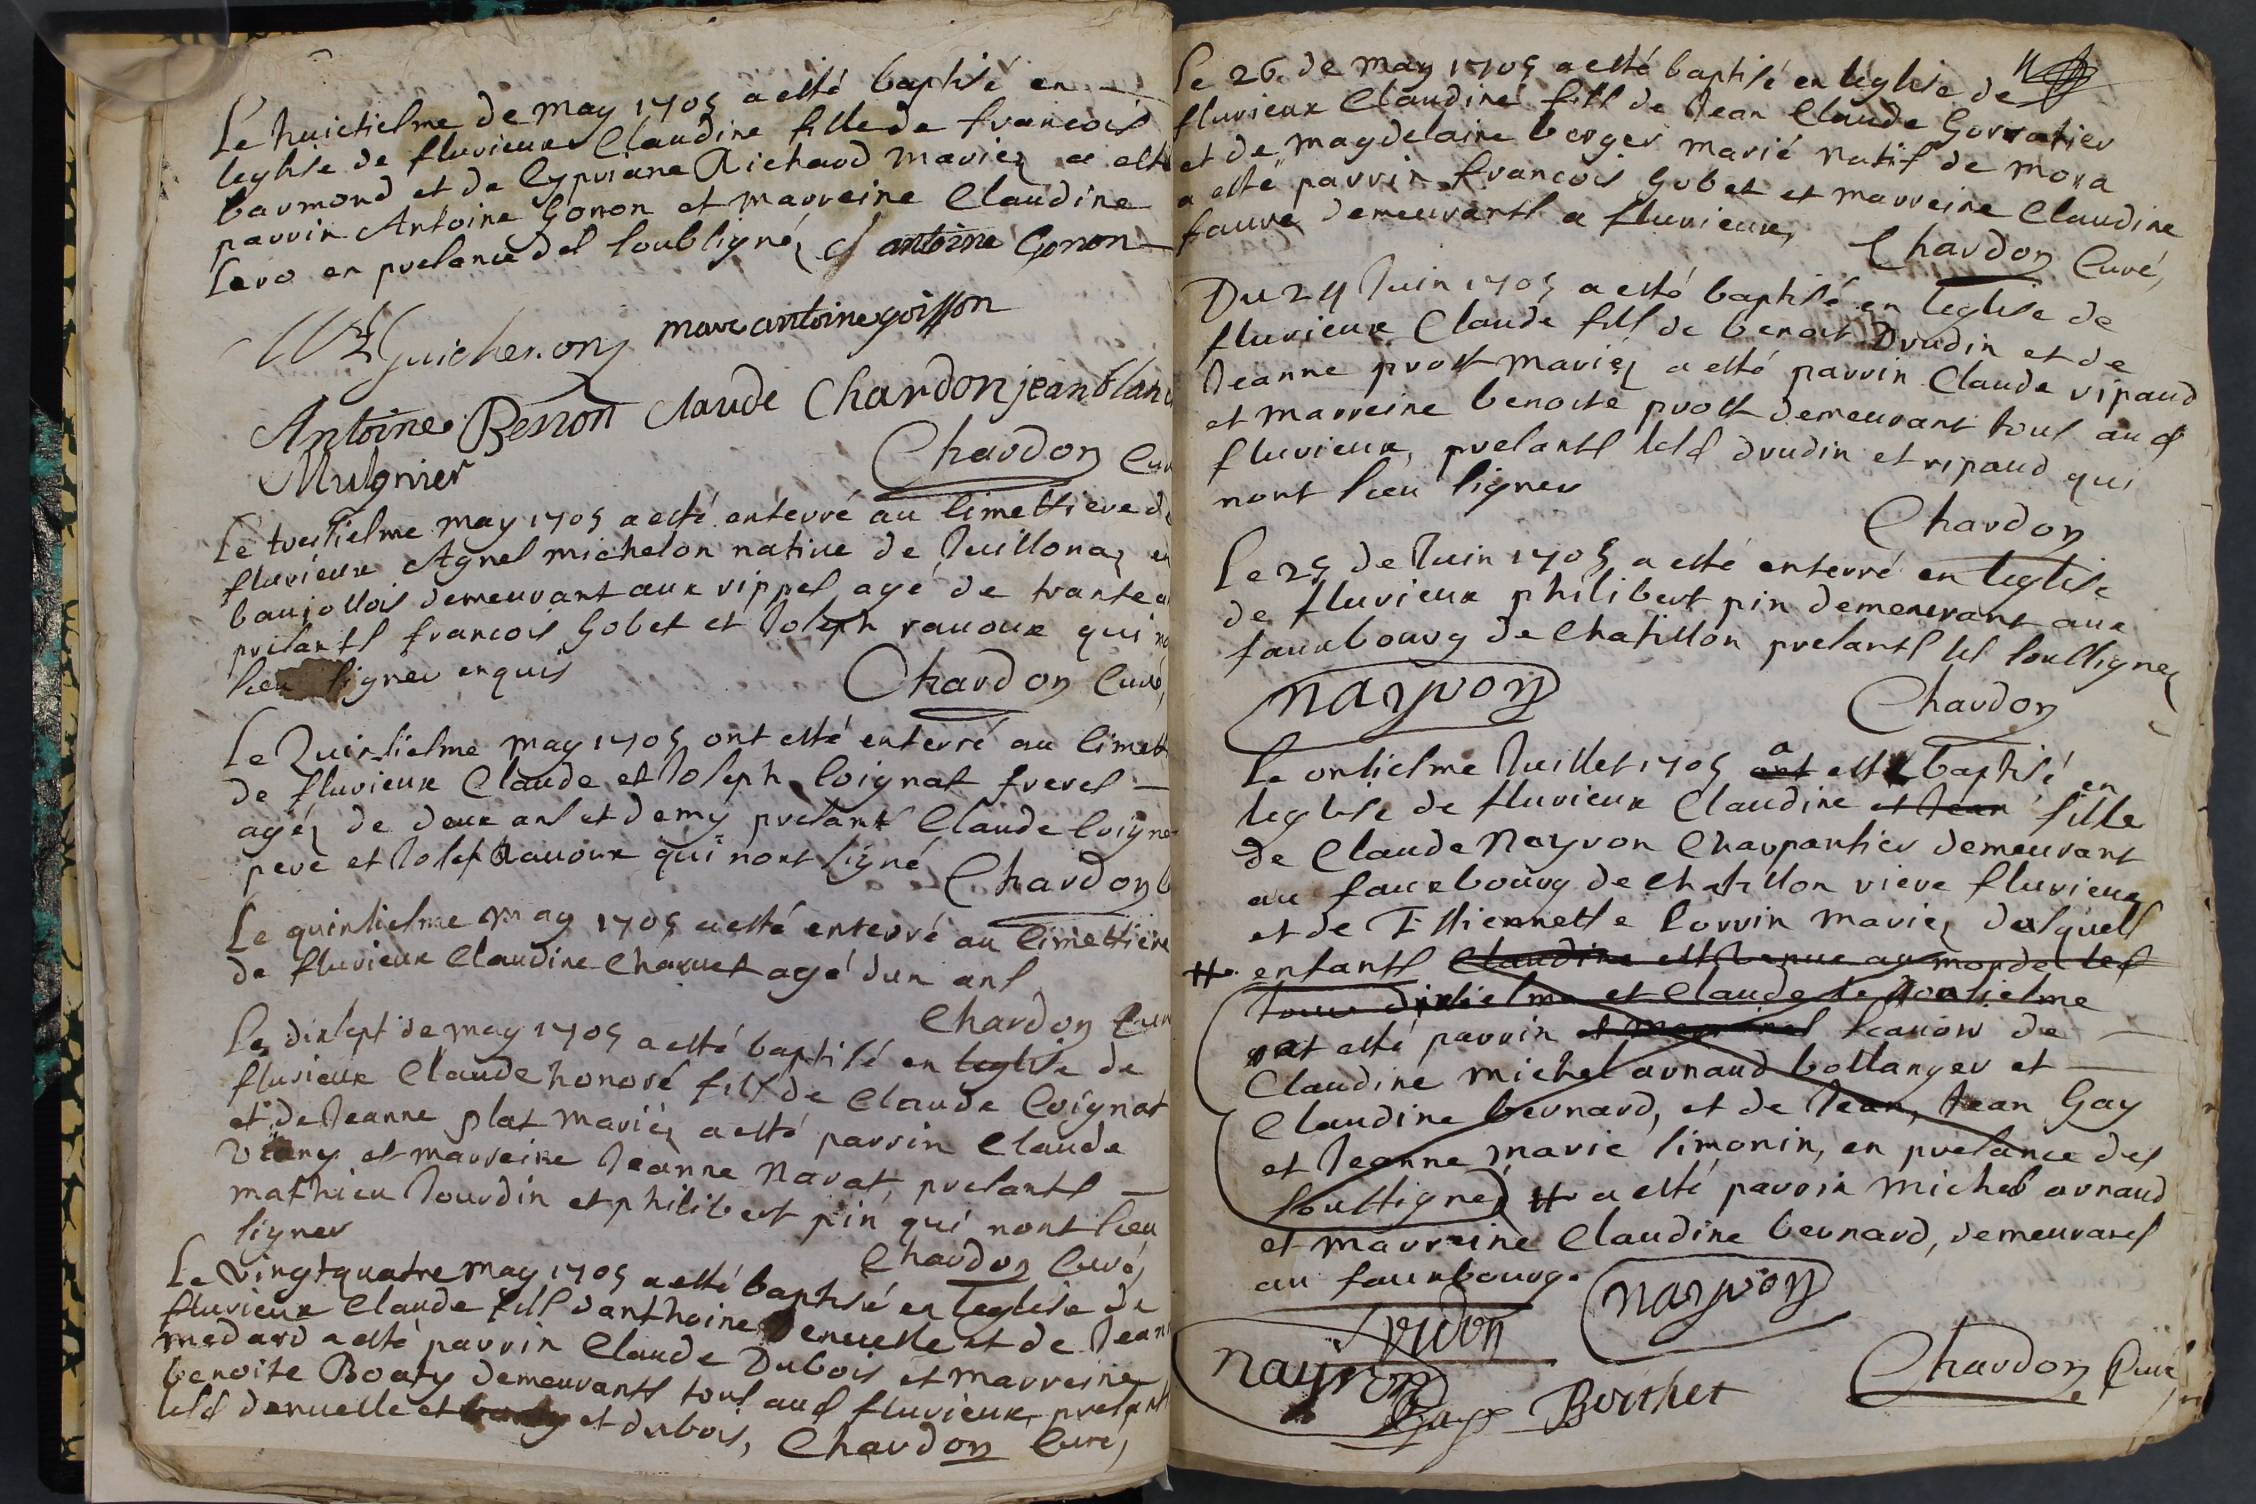 Le huictiesme de may 1705 a esté baptisé en
leglise de fluvieux Claudine fille de francois
barmond et de Cypriane Richard mariez a esté
parrin Antoine Gonon et marreine Claudine
Lero en presence des soubsignéz antoine Gonon
Guichenon marc antoine goisson
Antoine Besson Claude Chardon jean blanc
Mulgnier Chardon Curé
Le treisiesme may 1705 a esté enterré au simettiere de
fluvieux Agnes michelon native de Juillonas en
baujollois demeurant aux rippes agé de trante
presants francois Gobet et Joseph ravoux qui
sceu signer enquis Chardon Curé,
Le Quinsiesme may 1705 ont esté enterré au simett
de fluvieux Claude et Joseph Coignat freres
agéz de deux ans et demy presant Claude Coignat
pere et Joseph Ravoux qui nont signé Chardon
Le quinsiesme may 1705 a esté enterré au simettiere
de fluvieux Claudine Charvet agé dun ans
Chardon Curé
Le dixsept de may 1705 a esté baptisé en leglise de
fluvieux Claude honoré fils de Claude Coignat
et de Jeanne plat mariéz a esté parrin Claude
et marreine Jeanne Navat, presants
mathieu Jourdin et philibert pin qui nont sceu
signer Chardon Curé,
Le vingt quatre may 1705 a esté baptisé en leglise de
fluvieux Claude fils danthoine Denuelle et de Jean
medard a esté parrin Claude Dubois et marreine
benoite Boaty demeurants tous aud fluvieux, presants
lesd denuelle et et dubois, Chardon Curé,
Le 26 de may 1705 a esté baptisé en leglise de 11
fluvieux Claudine fille de Jean Claude Gorratier
et de magdelaine berger marié natif de mora
a esté parrin francois Gobet et marreine Claudine
fauvre demeurants a fluvieux, Chardon Curé,
Du 24 Juin 1705 a esté baptisé en leglise de
fluvieux Claude fils de benoit Drudin et de
Jeanne prost mariéz a esté parrin Claude ripaud
et marreine benoite prost demeurant tous aud
fluvieux, presants lesd drudin et ripaud qui
nont sceu signer
Chardon
Le 25 de Juin 1705 a esté enterré en leglise
de fluvieux philibert pin demeurant aux
fauxbourg de Chatillon presants les soussignez
nayvon Chardon
Le onsiesme Juillet 1705 ont a esté baptisé en
leglise de fluvieux Claudine et Jean fille
de Claude Nayron Charpantier demeurant
au fauxbourg de Chatillon riere fluvieux
et de Estiennette Lorrin mariez desquels
# enfants Claudine est venue au monde le
Jour dixiesme et Claude le onsiesme
ont esté parrin et marreines scavoir de
Claudine michel arnaud bollanger et
Claudine bernard, et de Jean, Jean Gay
et Jeanne marie simonin, en presance des
soussignez # a esté parrin michel arnaud
et marreine Claudine bernard, demeurants
au fauxbourg.
nayvon
nayron Chardon Curé
Gay Berthet